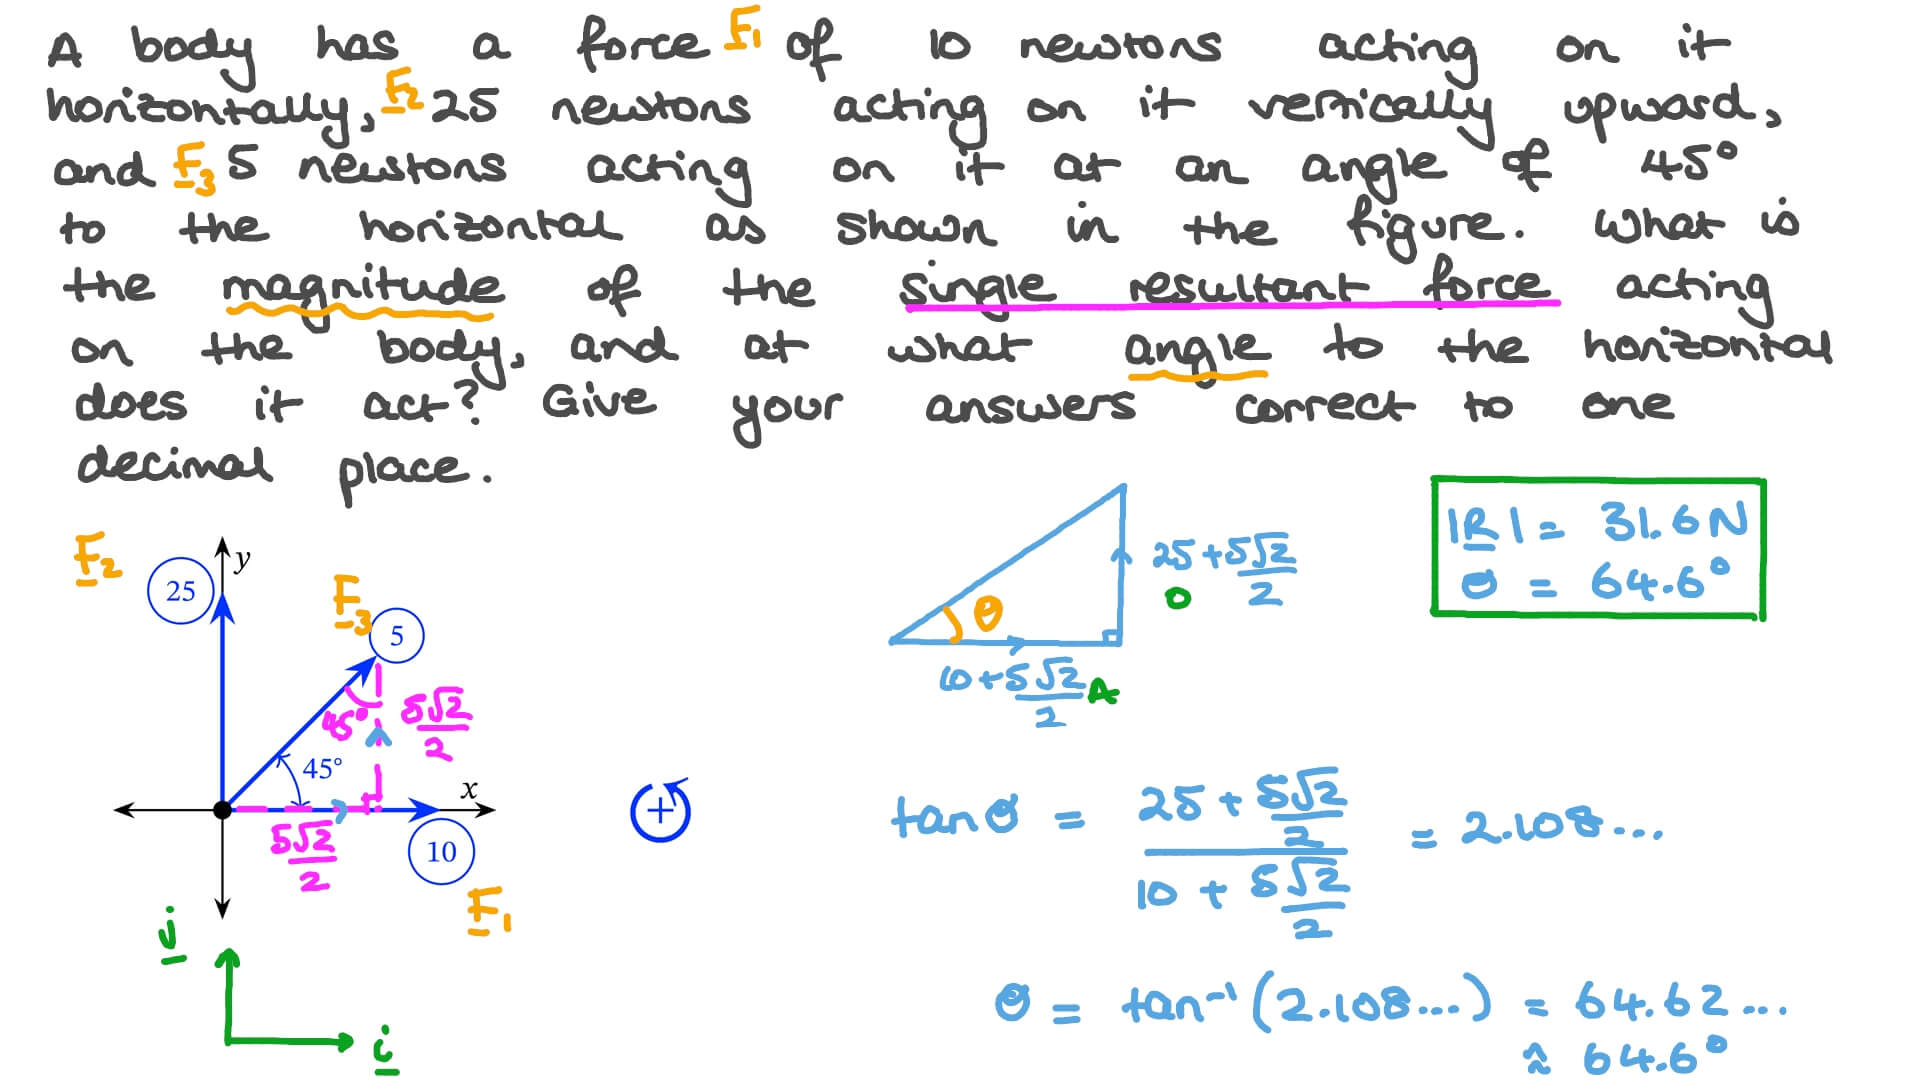 A body has a force F₁ of 10 newtons acting on it
horizontally, F₂ 25 newtons acting on it vertically upward,
and F₃ 5 newtons acting on it at an angle of 45°
to the horizontal as shown in the figure. What is
the magnitude of the single resultant force acting
on the body, and at what angle to the horizontal
does it act? Give your answers correct to one
decimal place.
F₂
25
y
F₃
5
45°
5√2/2
45°
x
5√2/2
10
F₁
j
i
+
θ
25 + 5√2/2
O
10 + 5√2/2
A
|R| = 31.6N
θ = 64.6°
tan θ = (25 + 5√2/2)/(10 + 5√2/2) = 2.108...
θ = tan⁻¹(2.108...) = 64.62...
≈ 64.6°